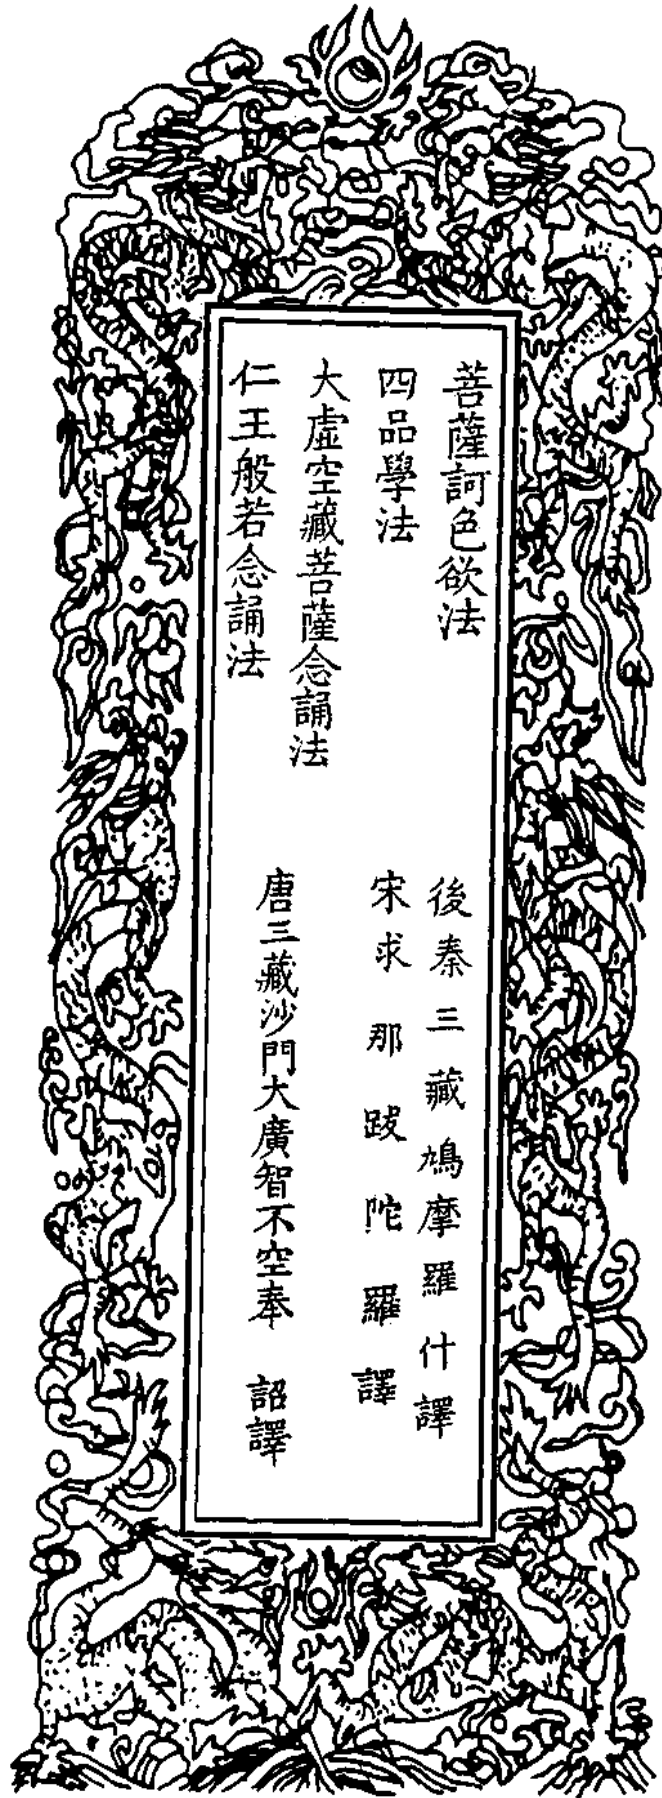 菩薩訶色欲法　後秦三藏鳩摩羅什譯
四品學法　宋求那跋陀羅譯
大虛空藏菩薩念誦法
仁王般若念誦法　唐三藏沙門大廣智不空奉　詔譯